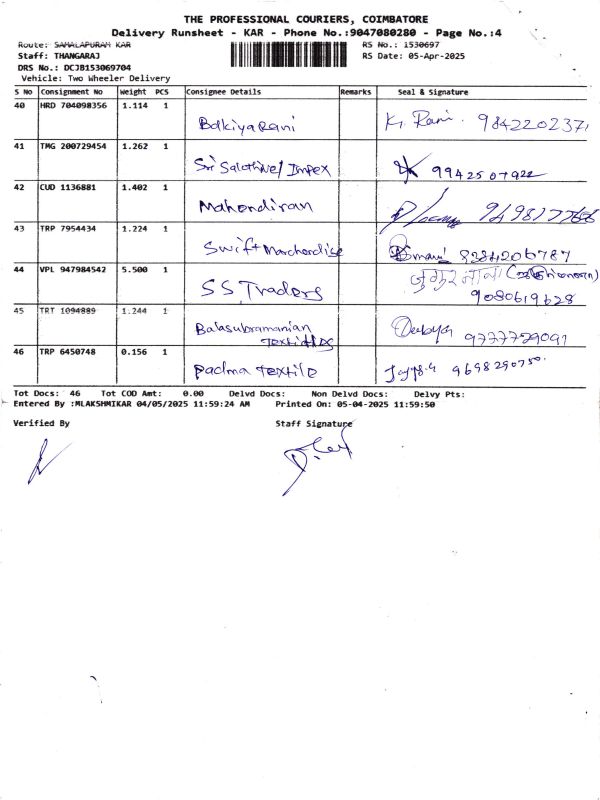 THE PROFESSIONAL COURIERS, COIMBATORE
Delivery Runsheet - KAR - Phone No.:9047080280 - Page No.:4
Route: SAMALAPURAM KAR RS No.: 1530697
Staff: THANGARAJ RS Date: 05-Apr-2025
DRS No.: DCJB153069704
Vehicle: Two Wheeler Delivery
S No Consignment No Weight PCS Consignee Details Remarks Seal & Signature
40 HRD 704098356 1.114 1 Bakiyarani K. Rani. 9842202371
41 TMG 200729454 1.262 1 Sri Impex 9942507922
42 CUD 1136881 1.402 1 Mahendiran
43 TRP 7954434 1.224 1 Swift Marchordise 8384206787
44 VPL 947984542 5.500 1 SS Traders 9080619628
45 TRT 1094889 1.244 1 Balasubramanian 9777729091
46 TRP 6450748 0.156 1 Padma Textile 9698290750.
Tot Docs: 46 Tot COD Amt: 0.00 Delvd Docs: Non Delvd Docs: Delvy Pts:
Entered By :MLAKSHMIKAR 04/05/2025 11:59:24 AM Printed On: 05-04-2025 11:59:50
Verified By Staff Signature